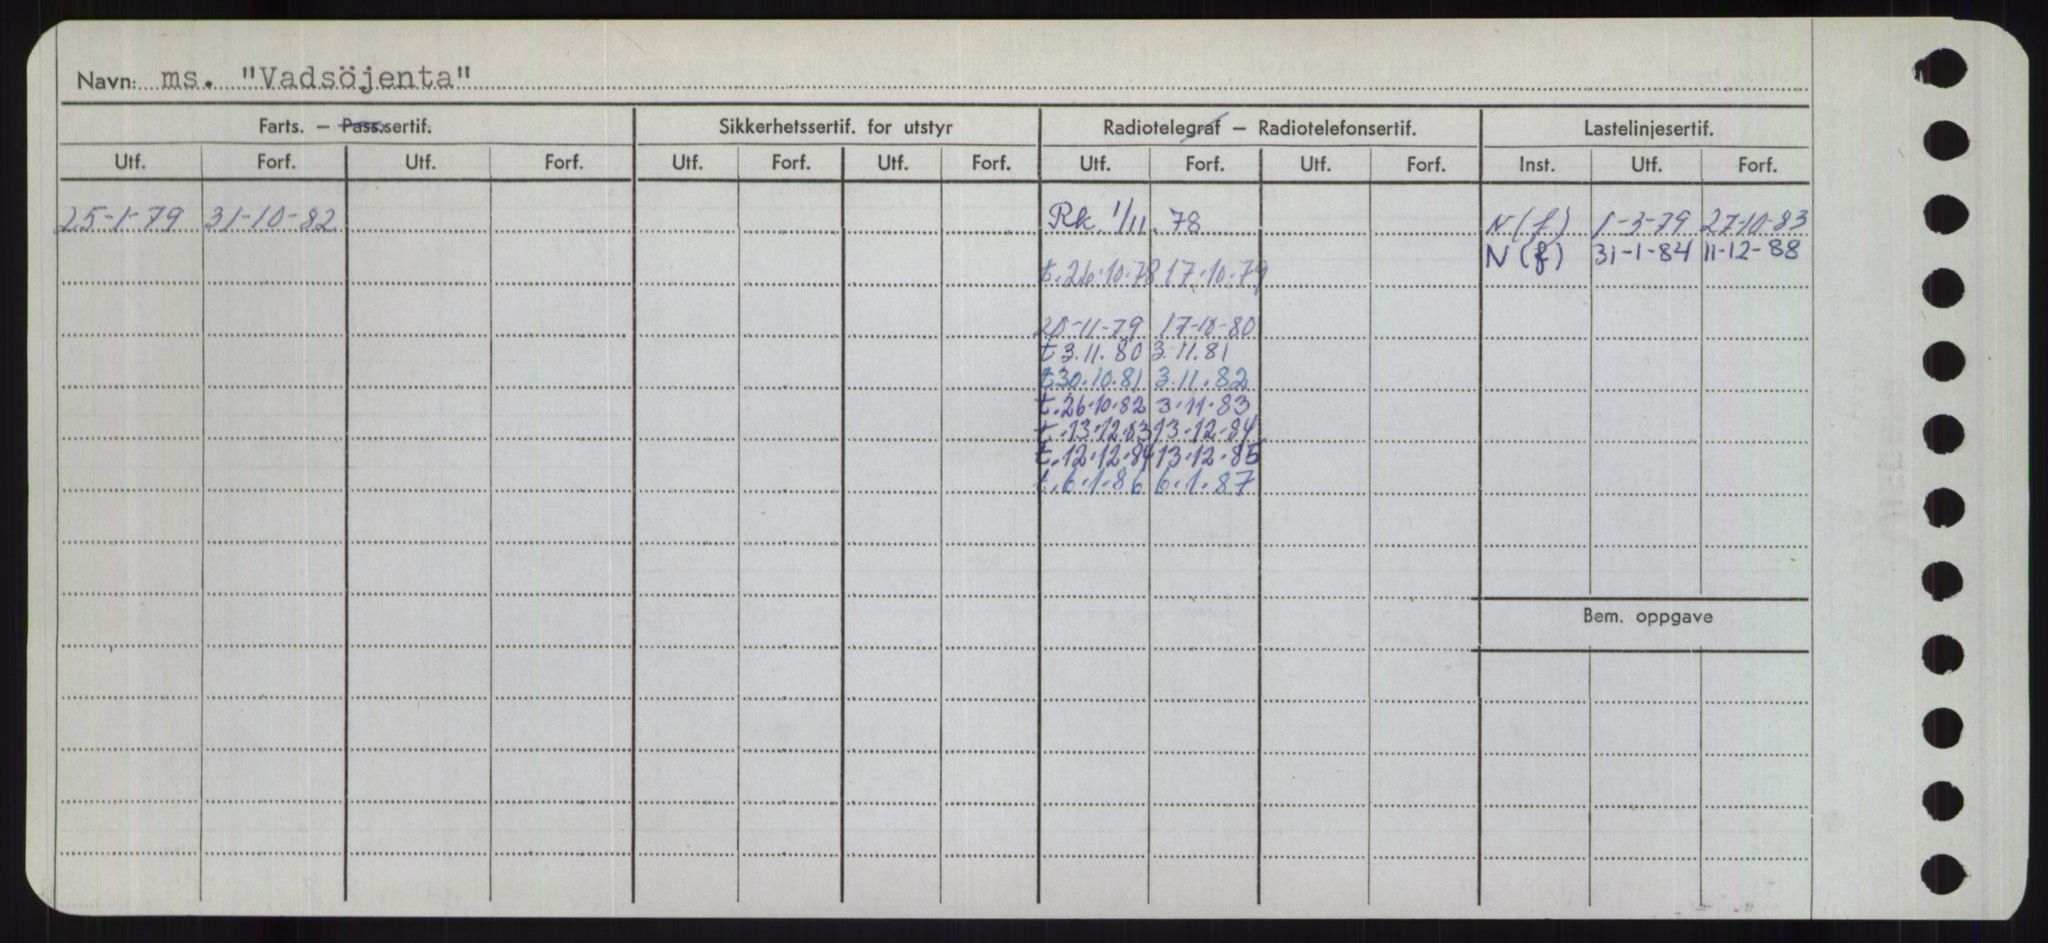 Navn: ms. "Vadsöjenta"
Farts. – Pass.sertif. Sikkerhetssertif. for utstyr Radiotelegraf – Radiotelefonsertif. Lastelinjesertif.
Utf. Forf. Utf. Forf. Utf. Forf. Utf. Forf. Utf. Forf. Utf. Forf. Inst. Utf. Forf.
25-1-79 31-10-82 Rk. 1/11. 78 N(f) 1-3-79 27-10-83
N(f) 31-1-84 11-12-88
t.26.10.78 17.10.79
20-11-79 17-10-80
t 3.11.80 3.11.81
t.30.10.81 3.11.82
t.26.10.82 3.11.83
t.13.12.83 13-12-84
t.12.12.84 13.12.85
t.6.1.86 6.1.87
Bem. oppgave